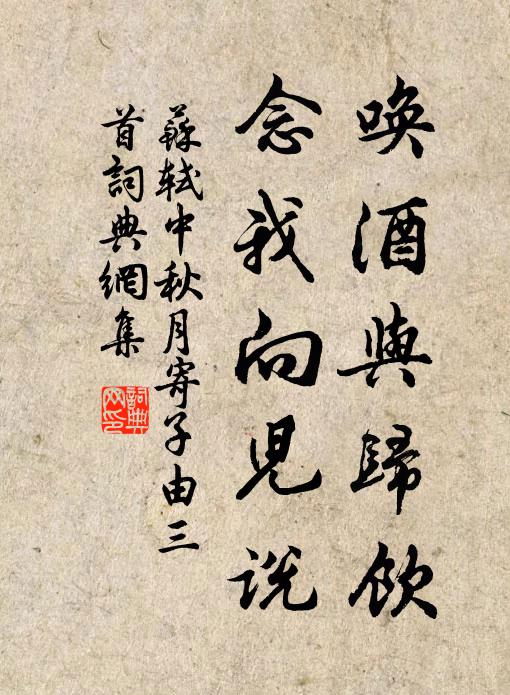 喚酒與歸飲
念我向兒說
蘇軾中秋月寄子由三
首詞典網集
詞典
网印